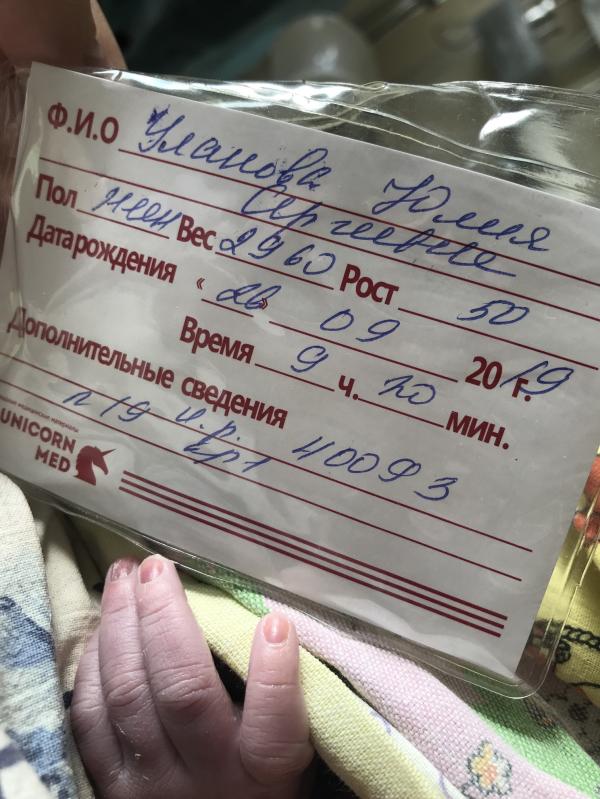 Ф.И.О Уланова Юлия
Сергеевна
Пол жен Вес 2960 Рост 50
Дата рождения « 26 » 09 2019 г.
Время 9 ч. 20 мин.
Дополнительные сведения
п 19 и.р. 40093
кр1
UNICORN
MED